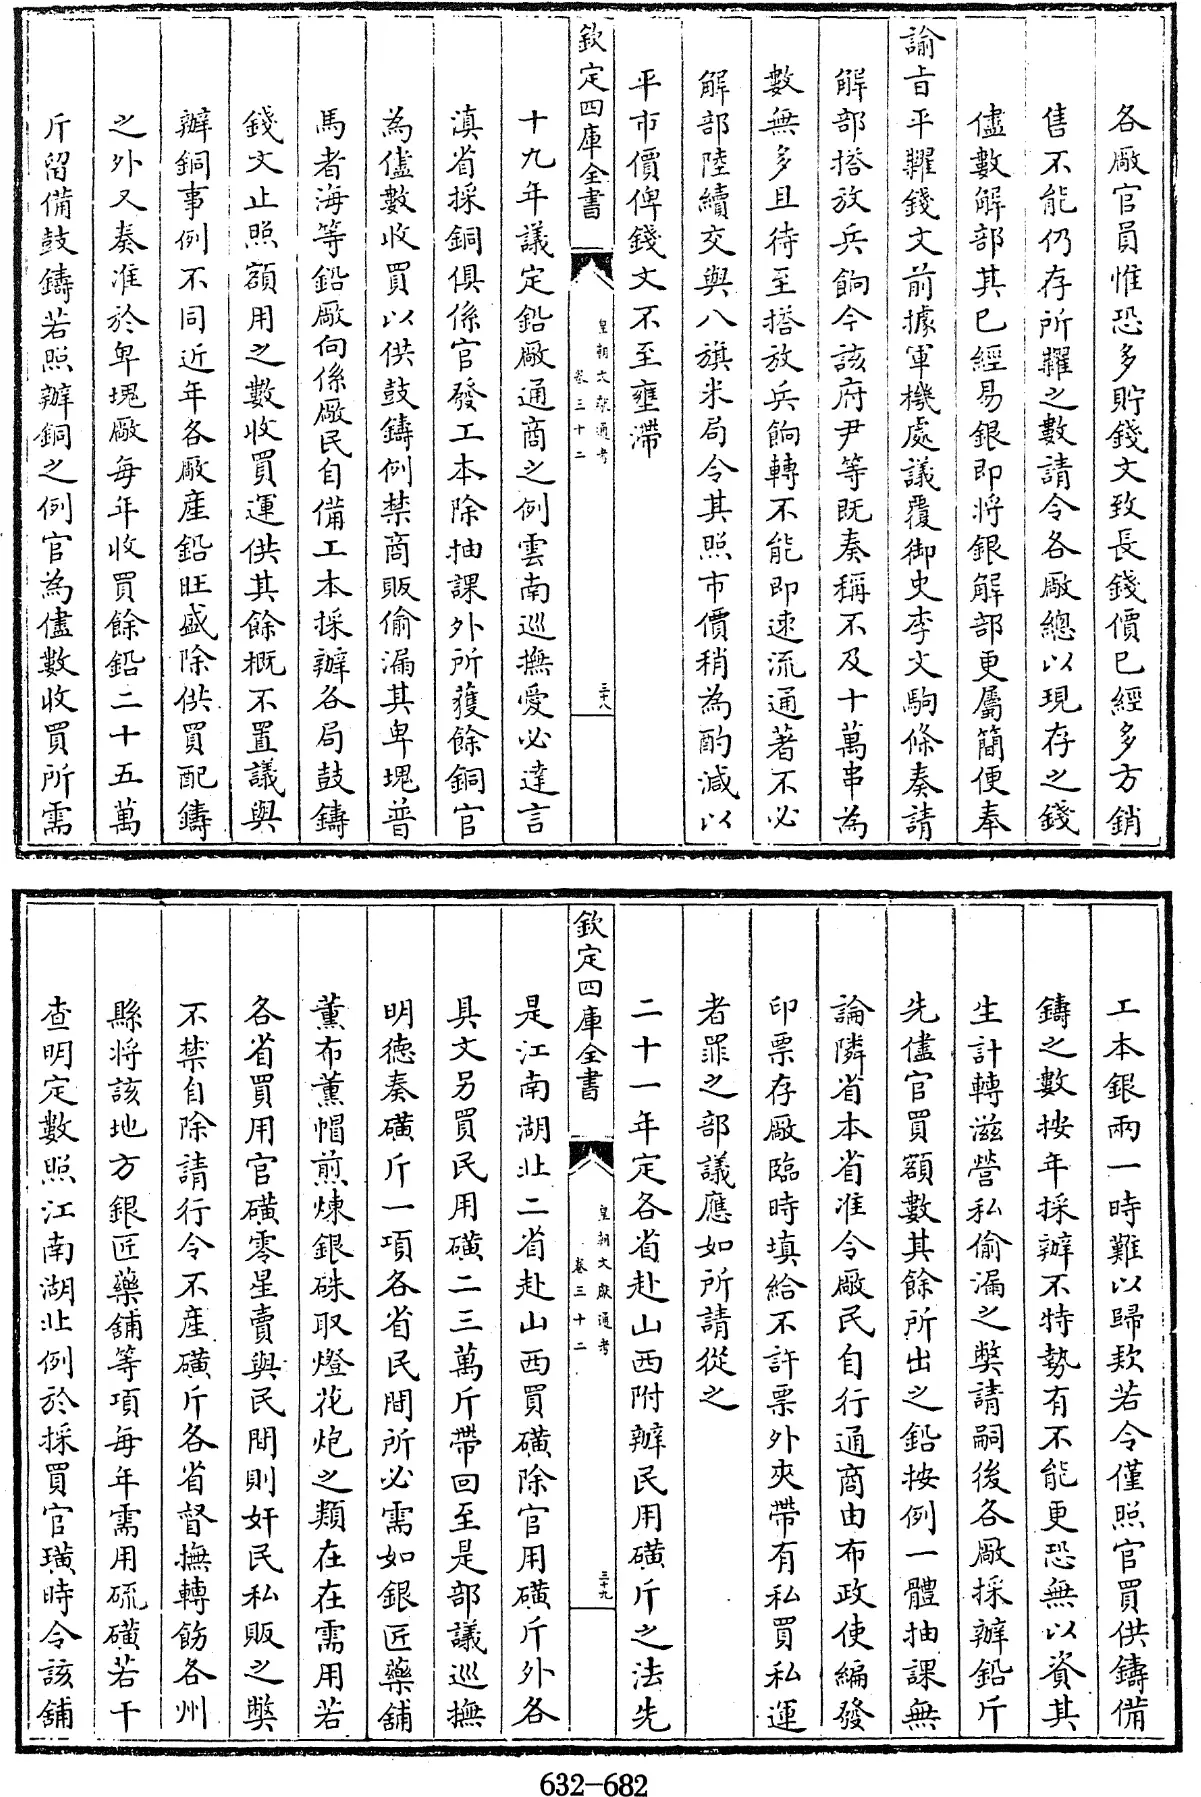 各厰官員惟恐多貯錢文致長錢價已經多方銷
售不能仍存所糶之數請令各厰總以現存之錢
儘數解部其已經易銀即將銀解部更屬簡便奉
諭旨平糶錢文前據軍機處議覆御史李文駒條奏請
解部搭放兵餉今該府尹等既奏稱不及十萬串為
數無多且待至搭放兵餉轉不能即速流通著不必
解部陸續交與八旗米局令其照市價稍為酌減以
平市價俾錢文不至壅滯
欽定四庫全書
皇朝文獻通考
卷三十二
三十八
十九年議定鉛厰通商之例雲南巡撫愛必達言
滇省採銅俱係官發工本除抽課外所獲餘銅官
為儘數收買以供鼓鑄例禁商販偷漏其卑塊普
馬者海等鉛厰向係厰民自備工本採辦各局鼓鑄
錢文止照額用之數收買運供其餘概不置議與
辦銅事例不同近年各厰產鉛旺盛除供買配鑄
之外又奏准於卑塊厰每年收買餘鉛二十五萬
斤留備鼓鑄若照辦銅之例官為儘數收買所需
工本銀兩一時難以歸欵若令僅照官買供鑄備
鑄之數按年採辦不特勢有不能更恐無以資其
生計轉滋營私偷漏之弊請嗣後各厰採辦鉛斤
先儘官買額數其餘所出之鉛按例一體抽課無
論隣省本省准令厰民自行通商由布政使編發
印票存厰臨時填給不許票外夾帶有私買私運
者罪之部議應如所請從之
二十一年定各省赴山西附辦民用磺斤之法先
欽定四庫全書
皇朝文獻通考
卷三十二
三十九
是江南湖北二省赴山西買磺除官用磺斤外各
具文另買民用磺二三萬斤帶回至是部議巡撫
明德奏磺斤一項各省民間所必需如銀匠藥舖
薰布薰帽煎煉銀硃取燈花炮之類在在需用若
各省買用官磺零星賣與民間則奸民私販之弊
不禁自除請行令不產磺斤各省督撫轉飭各州
縣將該地方銀匠藥舖等項每年需用硫磺若干
查明定數照江南湖北例於採買官磺時令該舖
632-682